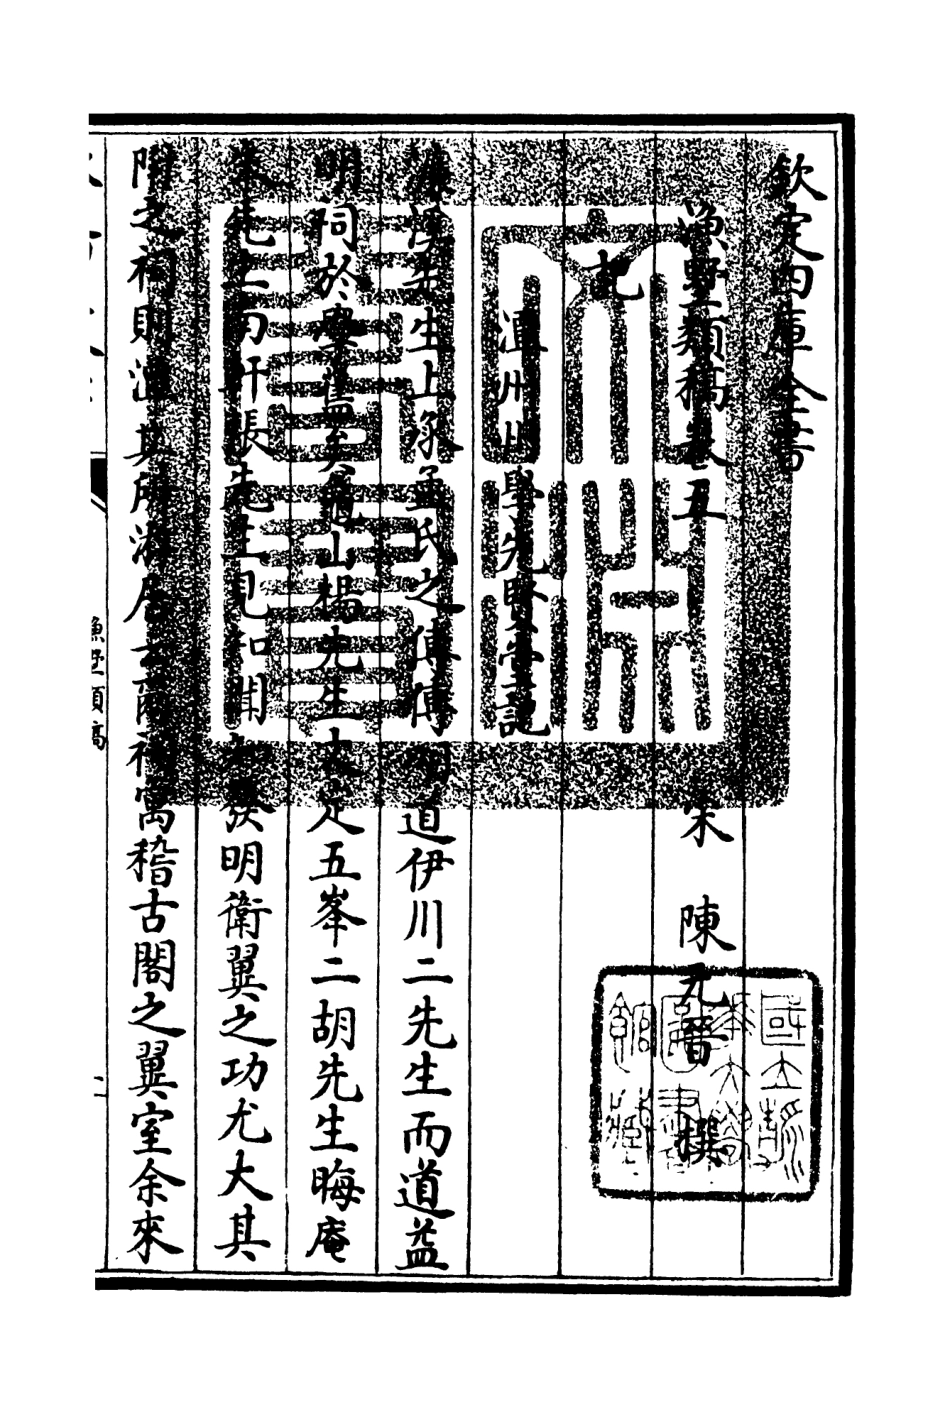 欽定四庫全書
漁墅類稿卷五 宋 陳元晉 撰
記
潭州州學先賢堂記
濂溪先生上承孟氏之傳傳明道伊川二先生而道益
明祠於學舊矣龜山楊先生文定五峯二胡先生晦庵
朱先生南軒張先生見知聞知發明衛翼之功尤大其
之祠則潭其所游居云兩祠寓稽古閣之翼室余來
漁墅類稿